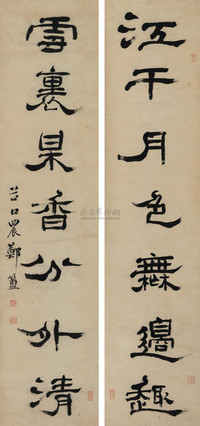 江干月色無邊趣
雪裏杲香分外清
谷口農鄭簠